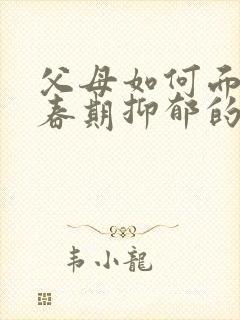 父母如何而
春期抑郁的
韦小龍